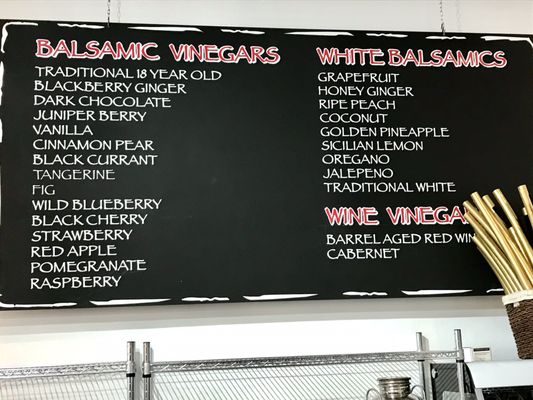 BALSAMIC VINEGARS
TRADITIONAL 18 YEAR OLD
BLACKBERRY GINGER
DARK CHOCOLATE
JUNIPER BERRY
VANILLA
CINNAMON PEAR
BLACK CURRANT
TANGERINE
FIG
WILD BLUEBERRY
BLACK CHERRY
STRAWBERRY
RED APPLE
POMEGRANATE
RASPBERRY
WHITE BALSAMICS
GRAPEFRUIT
HONEY GINGER
RIPE PEACH
COCONUT
GOLDEN PINEAPPLE
SICILIAN LEMON
OREGANO
JALEPENO
TRADITIONAL WHITE
WINE VINEGA
BARREL AGED RED WIN
CABERNET